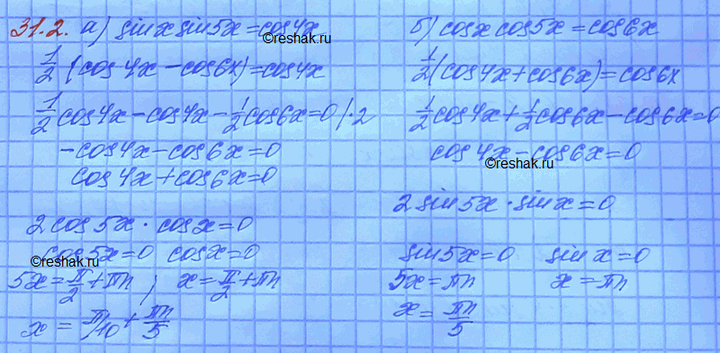 31.2. а) sinx sin5x = cos4x
©reshak.ru
1/2 (cos4x - cos6x) = cos4x
1/2 cos4x - cos4x - 1/2 cos6x = 0 |·2
-cos4x - cos6x = 0
cos4x + cos6x = 0
2cos5x · cosx = 0
cos5x = 0 cosx = 0
©reshak.ru
5x = π/2 + πn ; x = π/2 + πn
x = π/10 + πn/5
б) cosx cos5x = cos6x
1/2 (cos4x + cos6x) = cos6x
1/2 cos4x + 1/2 cos6x - cos6x = 0
cos4x - cos6x = 0
©reshak.ru
2sin5x · sinx = 0
sin5x = 0 sinx = 0
5x = πn x = πn
x = πn/5